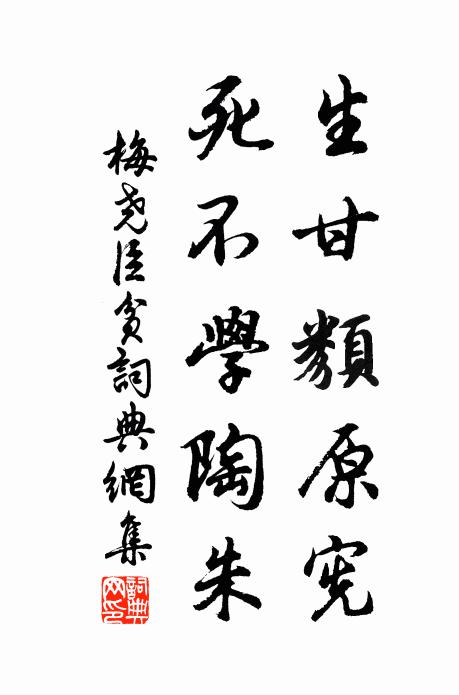 生甘類原宪
死不學陶朱
梅尧臣贫詞典網集
詞典网印